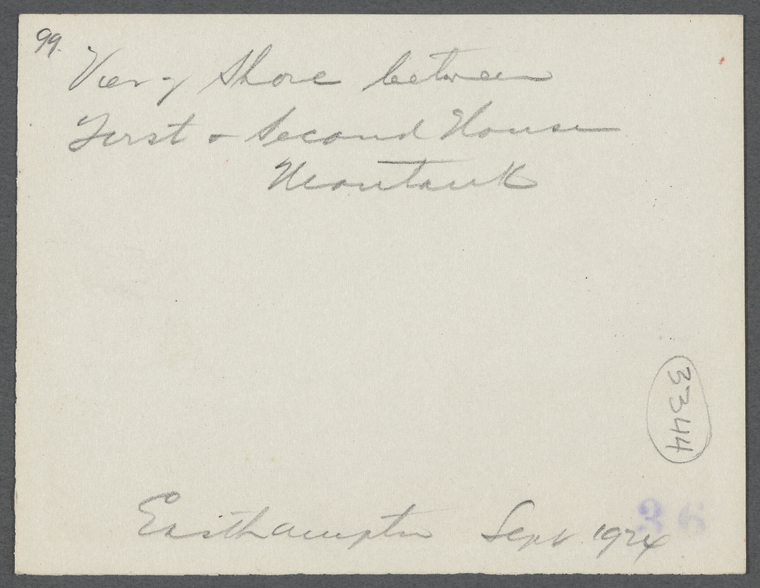 99.
View of Shore between
First & Second House
Montauk
3344
Easthampton Sept 1924
36